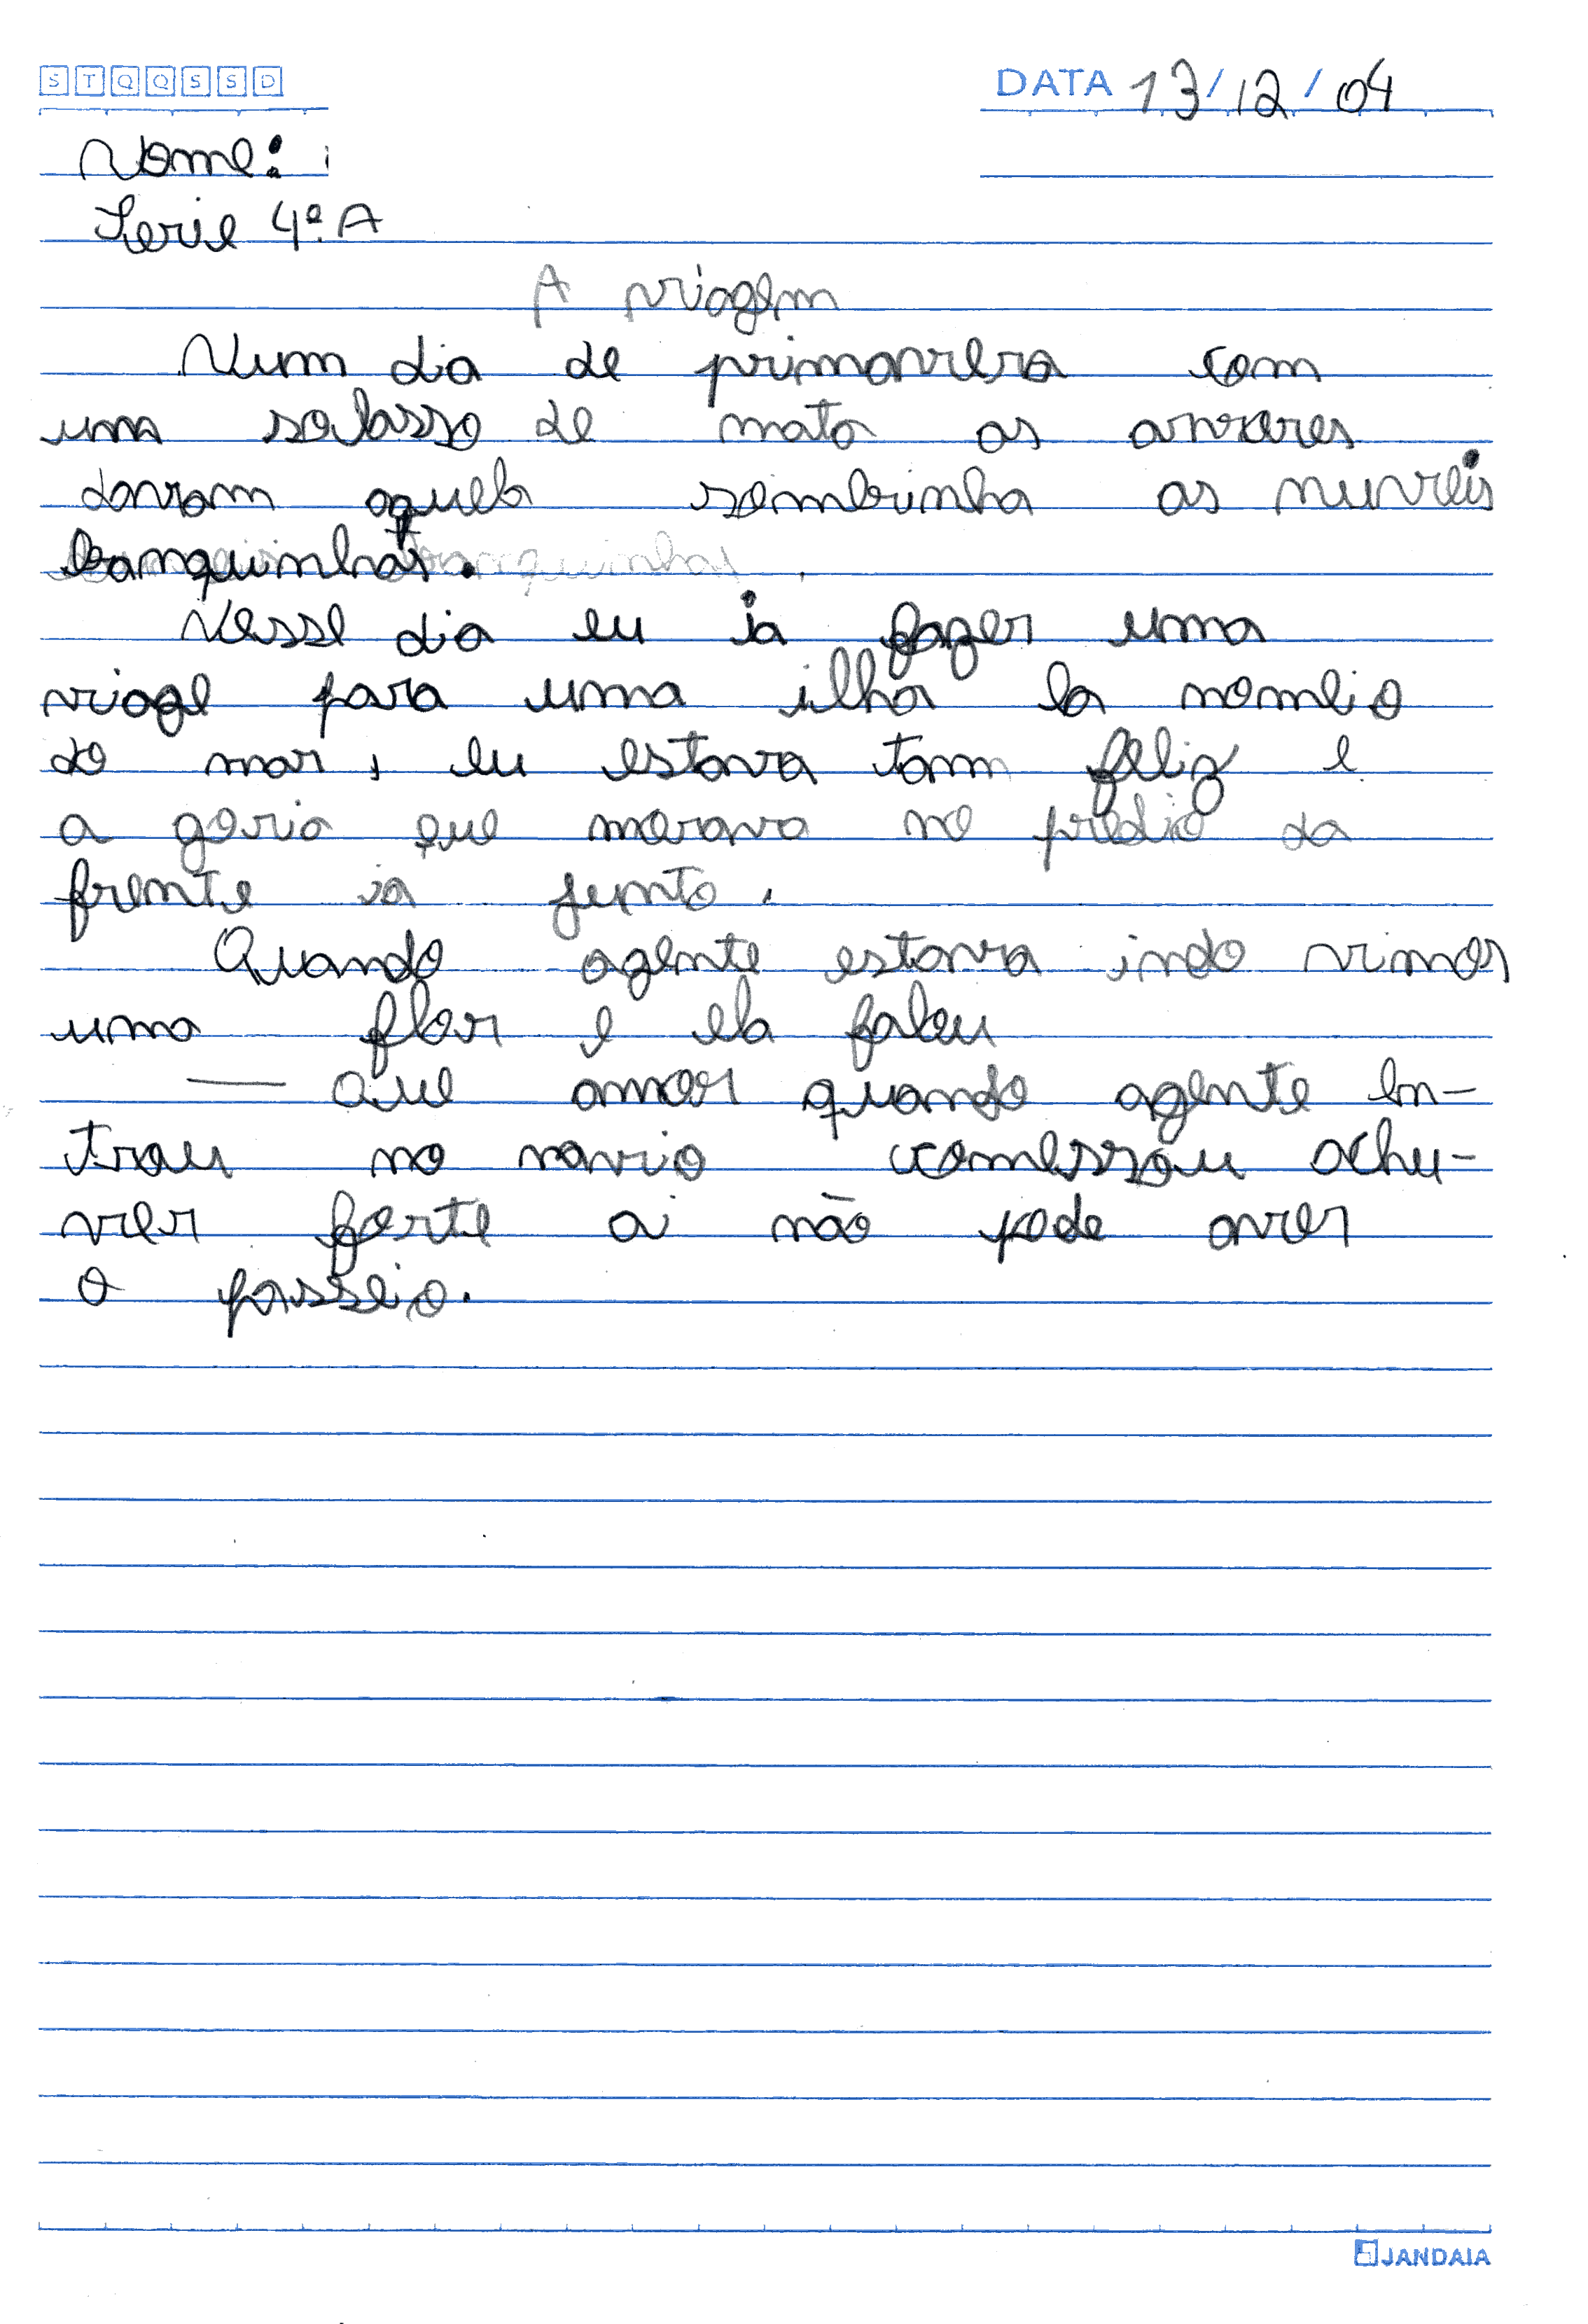 S T Q Q S S D
DATA 13/12/04
Nome:
Serie 4ª. A
A viagem
Num dia de primavera com
uma solasso de mata as arvores
davam aquela sombrinha as nuveis
banquinhas.
Nesse dia eu ia fazer uma
viage para uma ilha la nomeio
do mar, eu estava tam feliz e
a que morava no predio da
frente ia junto.
Quando agente estava indo vimos
uma flor e ela falou
— Que amor quando agente en-
trou no navio comessou achu-
ver forte ai não pode aver
o passeio.
JANDAIA